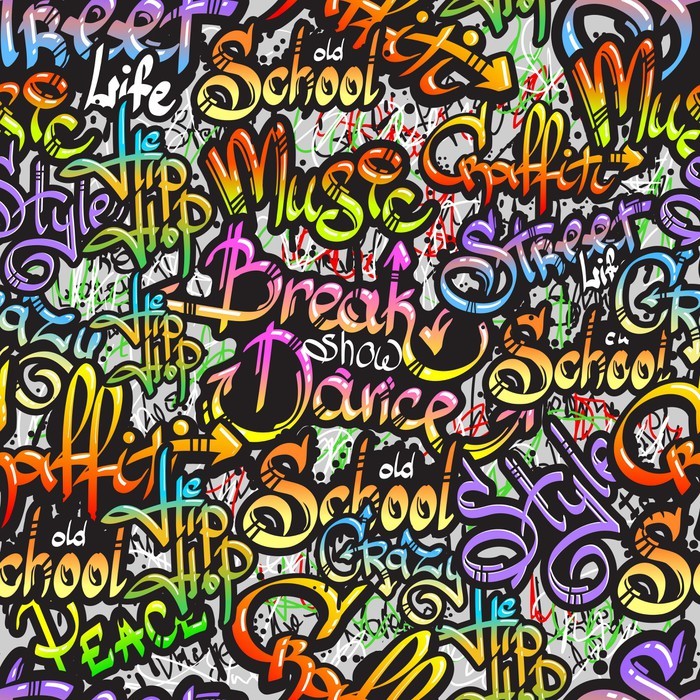 Street
Life
old
School
Graffiti
Music
Hip
Hop
Style
Music
Graffiti
Street
Life
Crazy
Hip
Hop
Break
Show
Dance
School
Graffiti
old
School
Crazy
Style
Hip
Hop
old
School
Peace
Graffiti
Hip
Hop
Street